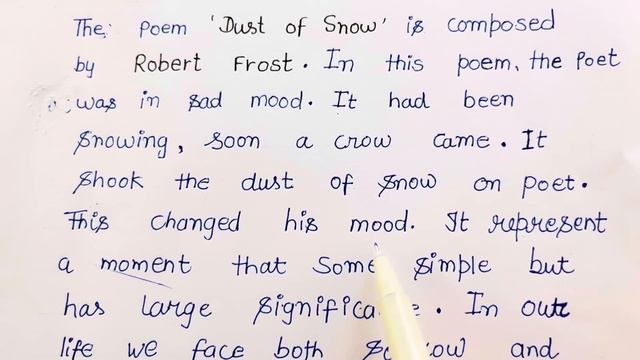 The poem 'Dust of Snow' is composed
by Robert Frost. In this poem, the poet
was in sad mood. It had been
snowing, soon a crow came. It
shook the dust of snow on poet.
This changed his mood. It represent
a moment that some simple but
has large . In our
life we face both and